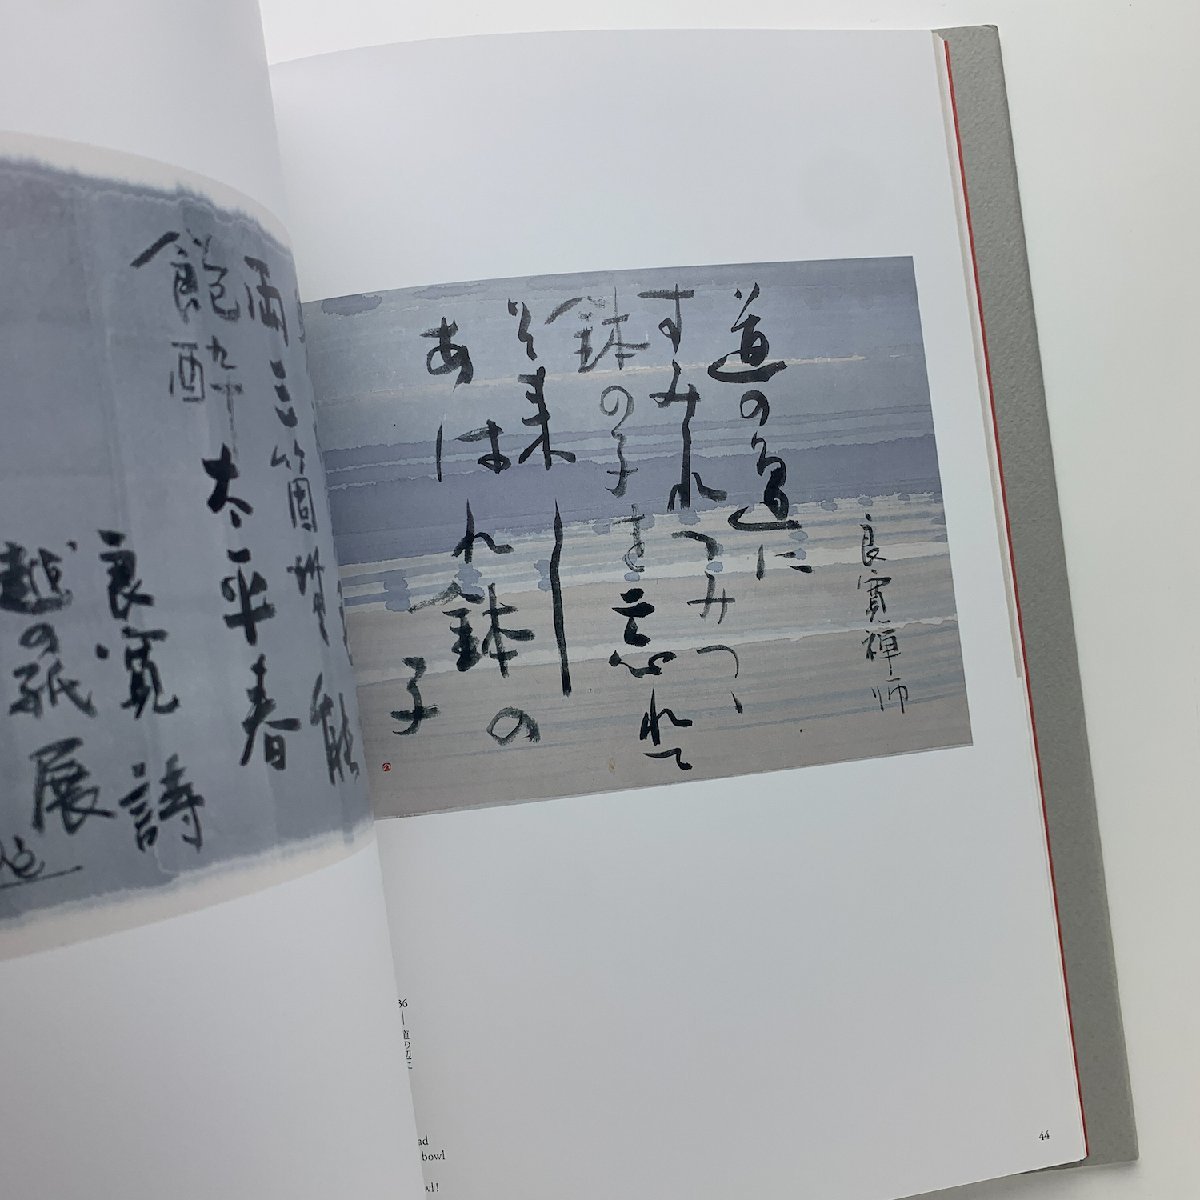 良寛禅師
道の邊に
すみれつみつゝ
鉢の子を忘れて
そ来し
あはれ鉢の
子
44
36
道の辺に
bowl
両三箇
太平春
飽酔
良寛詩
越の紙展